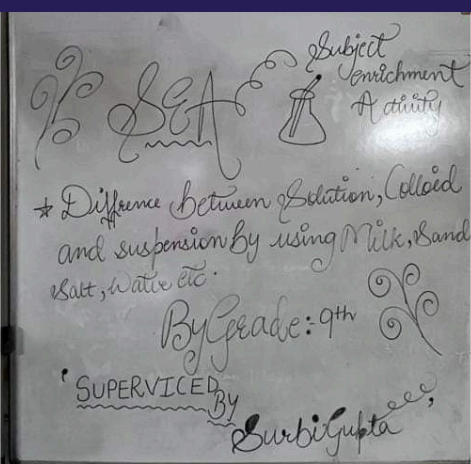 SEA
Subject
enrichment
Activity
* Diffrence between Solution, Colloid
and suspension By using Milk, Sand
Salt, Water etc.
By Grade:- 9th
SUPERVICED
BY
Surbi Gupta